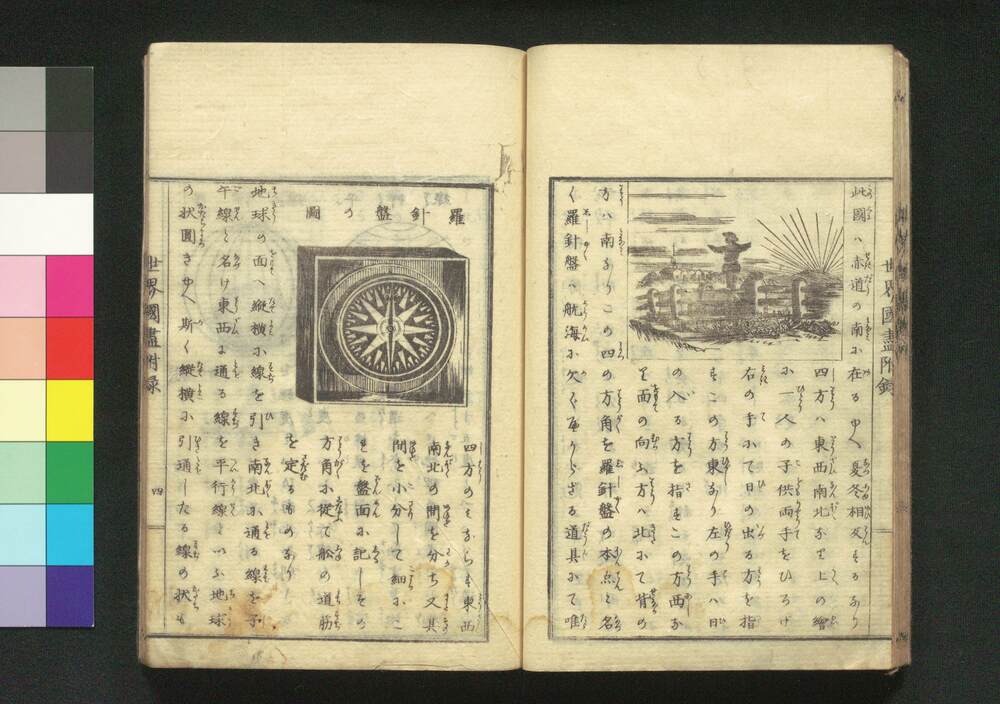 世界國盡附録
此國ハ赤道の南に在るゆへ夏冬相反するなり
四方ハ東西南北なり上の繪
に一人の子供両手をひろげ
右の手にて日の出る方を指
すこの方東なり左の手ハ日
の入る方を指すこの方西な
り面の向ふ方ハ北にて背の
方ハ南なりこの四の方角を羅針盤の本点と名
く羅針盤ハ航海に欠く可らざる道具にて唯
羅針盤の圖
四方のミならす東西
南北の間を分ち又其
間を小分して細にこ
れを盤面に記しその
方角に從て舩の道筋
を定るものなり
地球の面へ縦横に線を引き南北に通る線を子
午線と名け東西に通る線を平行線といふ地球
の状圓きゆへ斯く縦横に引通したる線の状も
世界國盡附録
四